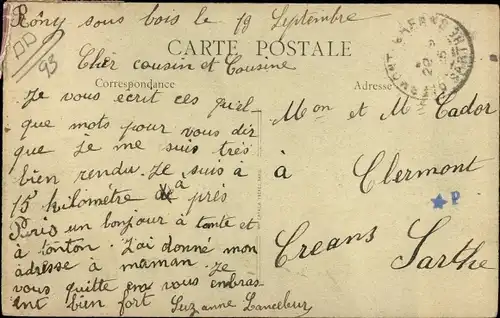 Rôny sous bois le 19 Septembre
DD
93
CARTE POSTALE
Cher cousin et Cousine
Correspondance
Adresse
Je vous ecrit ces quel-
que mots pour vous dir
que Je me suis très
bien rendu. Je suis à
15 kilomètre a près
Paris un bonjour à tante et
à tonton. J'ai donné mon
adresse à maman. Je
vous quitte en vous embras-
ant bien fort
Suzanne Lanceleur
Mon et M Cador
à
Clermont
P
Creans
Sarthe